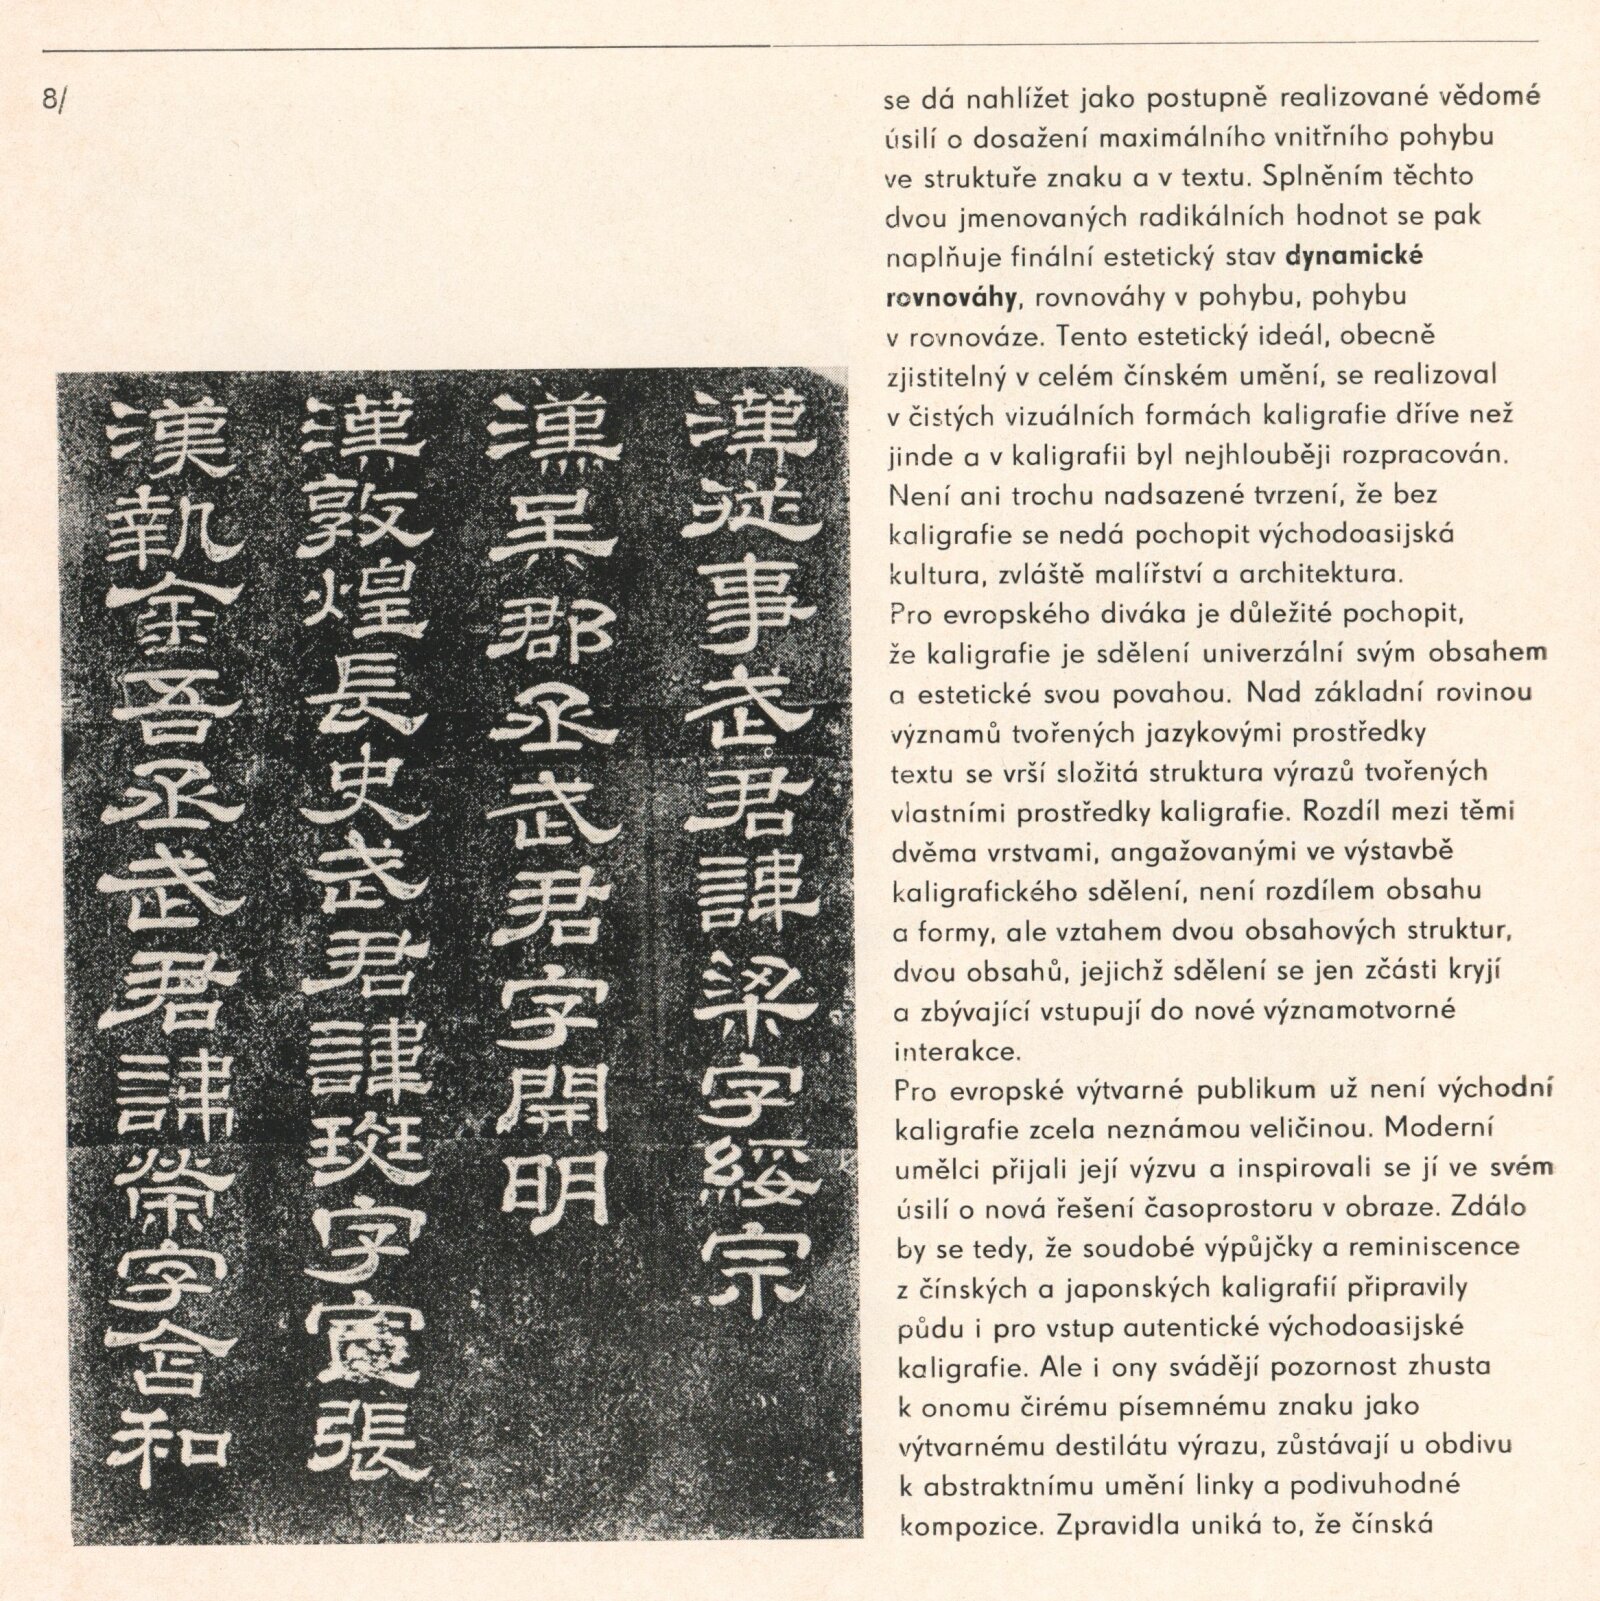 8/
漢從事武君諱梁字綏宗
漢吳郡丞武君字開明
漢敦煌長史武君諱班字宣張
漢執金吾丞武君諱榮字含和
se dá nahlížet jako postupně realizované vědomé
úsilí o dosažení maximálního vnitřního pohybu
ve struktuře znaku a v textu. Splněním těchto
dvou jmenovaných radikálních hodnot se pak
naplňuje finální estetický stav dynamické
rovnováhy, rovnováhy v pohybu, pohybu
v rovnováze. Tento estetický ideál, obecně
zjistitelný v celém čínském umění, se realizoval
v čistých vizuálních formách kaligrafie dříve než
jinde a v kaligrafii byl nejhlouběji rozpracován.
Není ani trochu nadsazené tvrzení, že bez
kaligrafie se nedá pochopit východoasijská
kultura, zvláště malířství a architektura.
Pro evropského diváka je důležité pochopit,
že kaligrafie je sdělení univerzální svým obsahem
a estetické svou povahou. Nad základní rovinou
významů tvořených jazykovými prostředky
textu se vrší složitá struktura výrazů tvořených
vlastními prostředky kaligrafie. Rozdíl mezi těmi
dvěma vrstvami, angažovanými ve výstavbě
kaligrafického sdělení, není rozdílem obsahu
a formy, ale vztahem dvou obsahových struktur,
dvou obsahů, jejichž sdělení se jen zčásti kryjí
a zbývající vstupují do nové významotvorné
interakce.
Pro evropské výtvarné publikum už není východní
kaligrafie zcela neznámou veličinou. Moderní
umělci přijali její výzvu a inspirovali se jí ve svém
úsilí o nová řešení časoprostoru v obraze. Zdálo
by se tedy, že soudobé výpůjčky a reminiscence
z čínských a japonských kaligrafií připravily
půdu i pro vstup autentické východoasijské
kaligrafie. Ale i ony svádějí pozornost zhusta
k onomu čirému písemnému znaku jako
výtvarnému destilátu výrazu, zůstávají u obdivu
k abstraktnímu umění linky a podivuhodné
kompozice. Zpravidla uniká to, že čínská